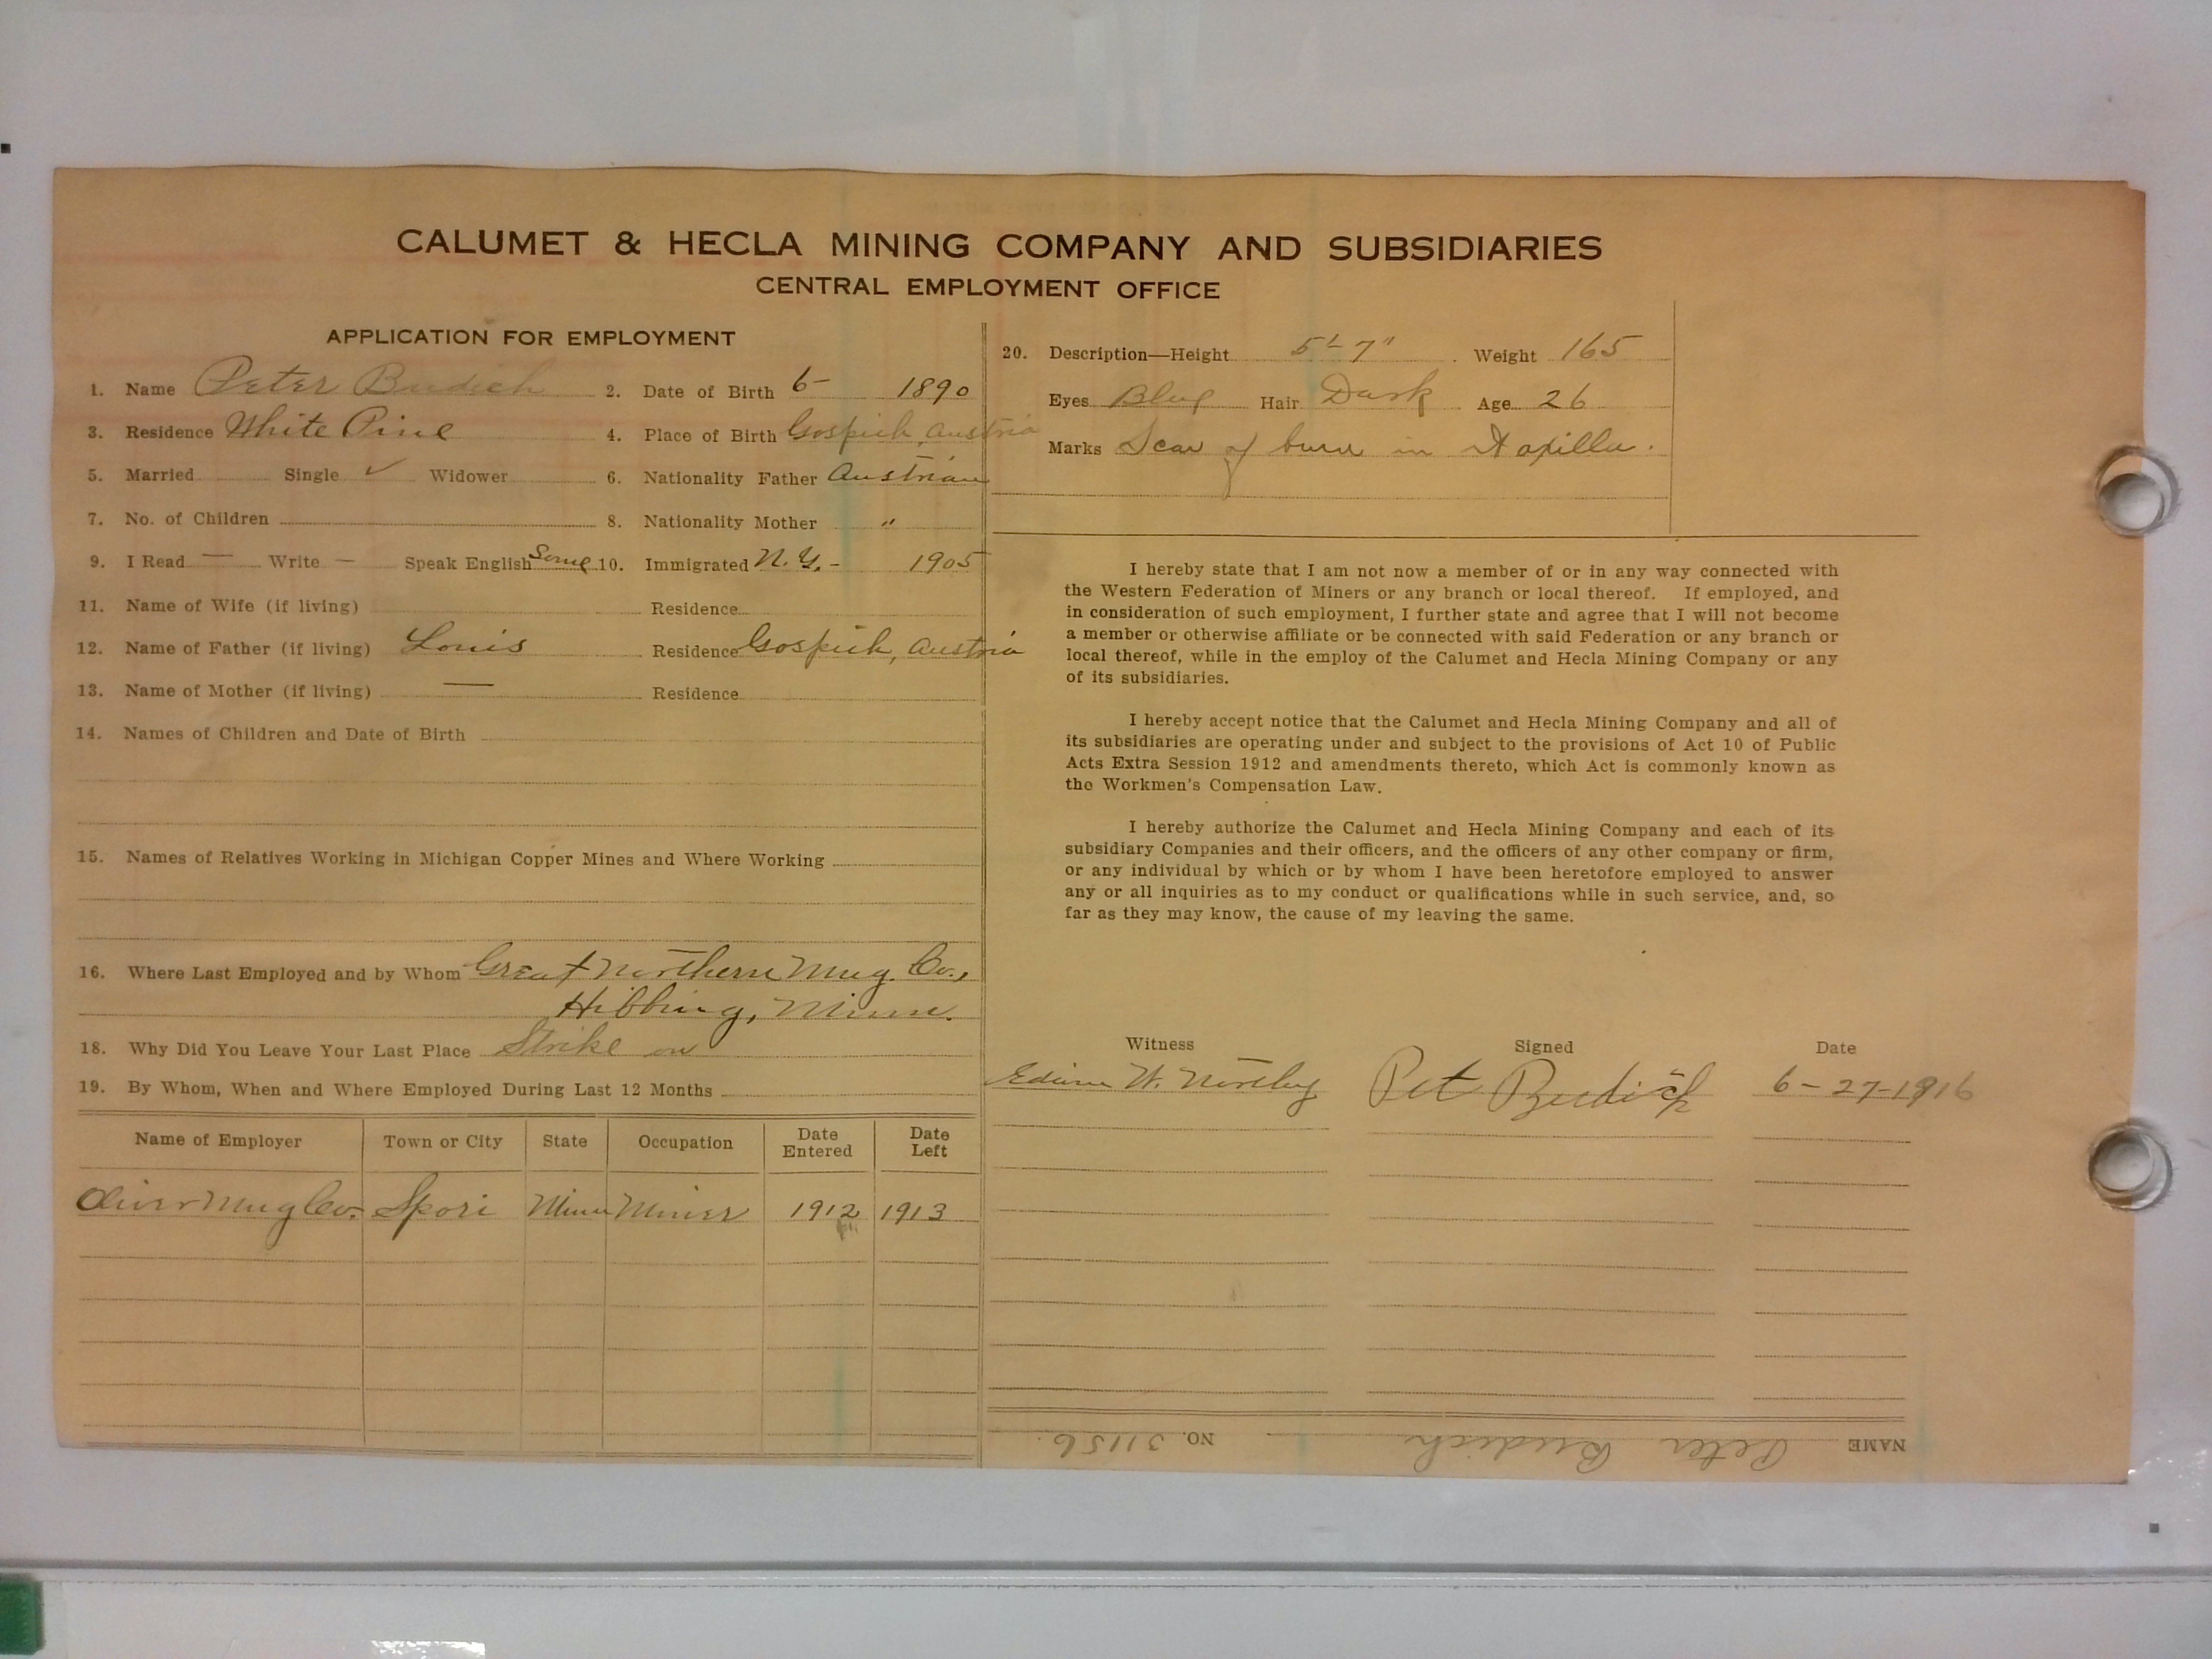 CALUMET & HECLA MINING COMPANY AND SUBSIDIARIES
CENTRAL EMPLOYMENT OFFICE
APPLICATION FOR EMPLOYMENT
1. Name Peter Budich 2. Date of Birth 6- 1890
3. Residence White Pine 4. Place of Birth Gospich, Austria
5. Married Single ✓ Widower 6. Nationality Father Austrian
7. No. of Children 8. Nationality Mother "
9. I Read — Write — Speak English Some 10. Immigrated N.Y. - 1905
11. Name of Wife (if living) Residence
12. Name of Father (if living) Louis Residence Gospich, Austria
13. Name of Mother (if living) — Residence
14. Names of Children and Date of Birth
15. Names of Relatives Working in Michigan Copper Mines and Where Working
16. Where Last Employed and by Whom Great Northern Mng. Co.,
Hibbing, Minn.
18. Why Did You Leave Your Last Place Strike on
19. By Whom, When and Where Employed During Last 12 Months
Name of Employer Town or City State Occupation Date Entered Date Left
Oliver Mng Co. Minn Miner 1912 1913
20. Description—Height 5'-7" Weight 165
Eyes Blue Hair Dark Age 26
Marks Scar of burn in axilla.
I hereby state that I am not now a member of or in any way connected with
the Western Federation of Miners or any branch or local thereof. If employed, and
in consideration of such employment, I further state and agree that I will not become
a member or otherwise affiliate or be connected with said Federation or any branch or
local thereof, while in the employ of the Calumet and Hecla Mining Company or any
of its subsidiaries.
I hereby accept notice that the Calumet and Hecla Mining Company and all of
its subsidiaries are operating under and subject to the provisions of Act 10 of Public
Acts Extra Session 1912 and amendments thereto, which Act is commonly known as
the Workmen's Compensation Law.
I hereby authorize the Calumet and Hecla Mining Company and each of its
subsidiary Companies and their officers, and the officers of any other company or firm,
or any individual by which or by whom I have been heretofore employed to answer
any or all inquiries as to my conduct or qualifications while in such service, and, so
far as they may know, the cause of my leaving the same.
Witness Signed Date
W. Pet Budich 6-27-1916
NAME Peter Budich NO. 31156.